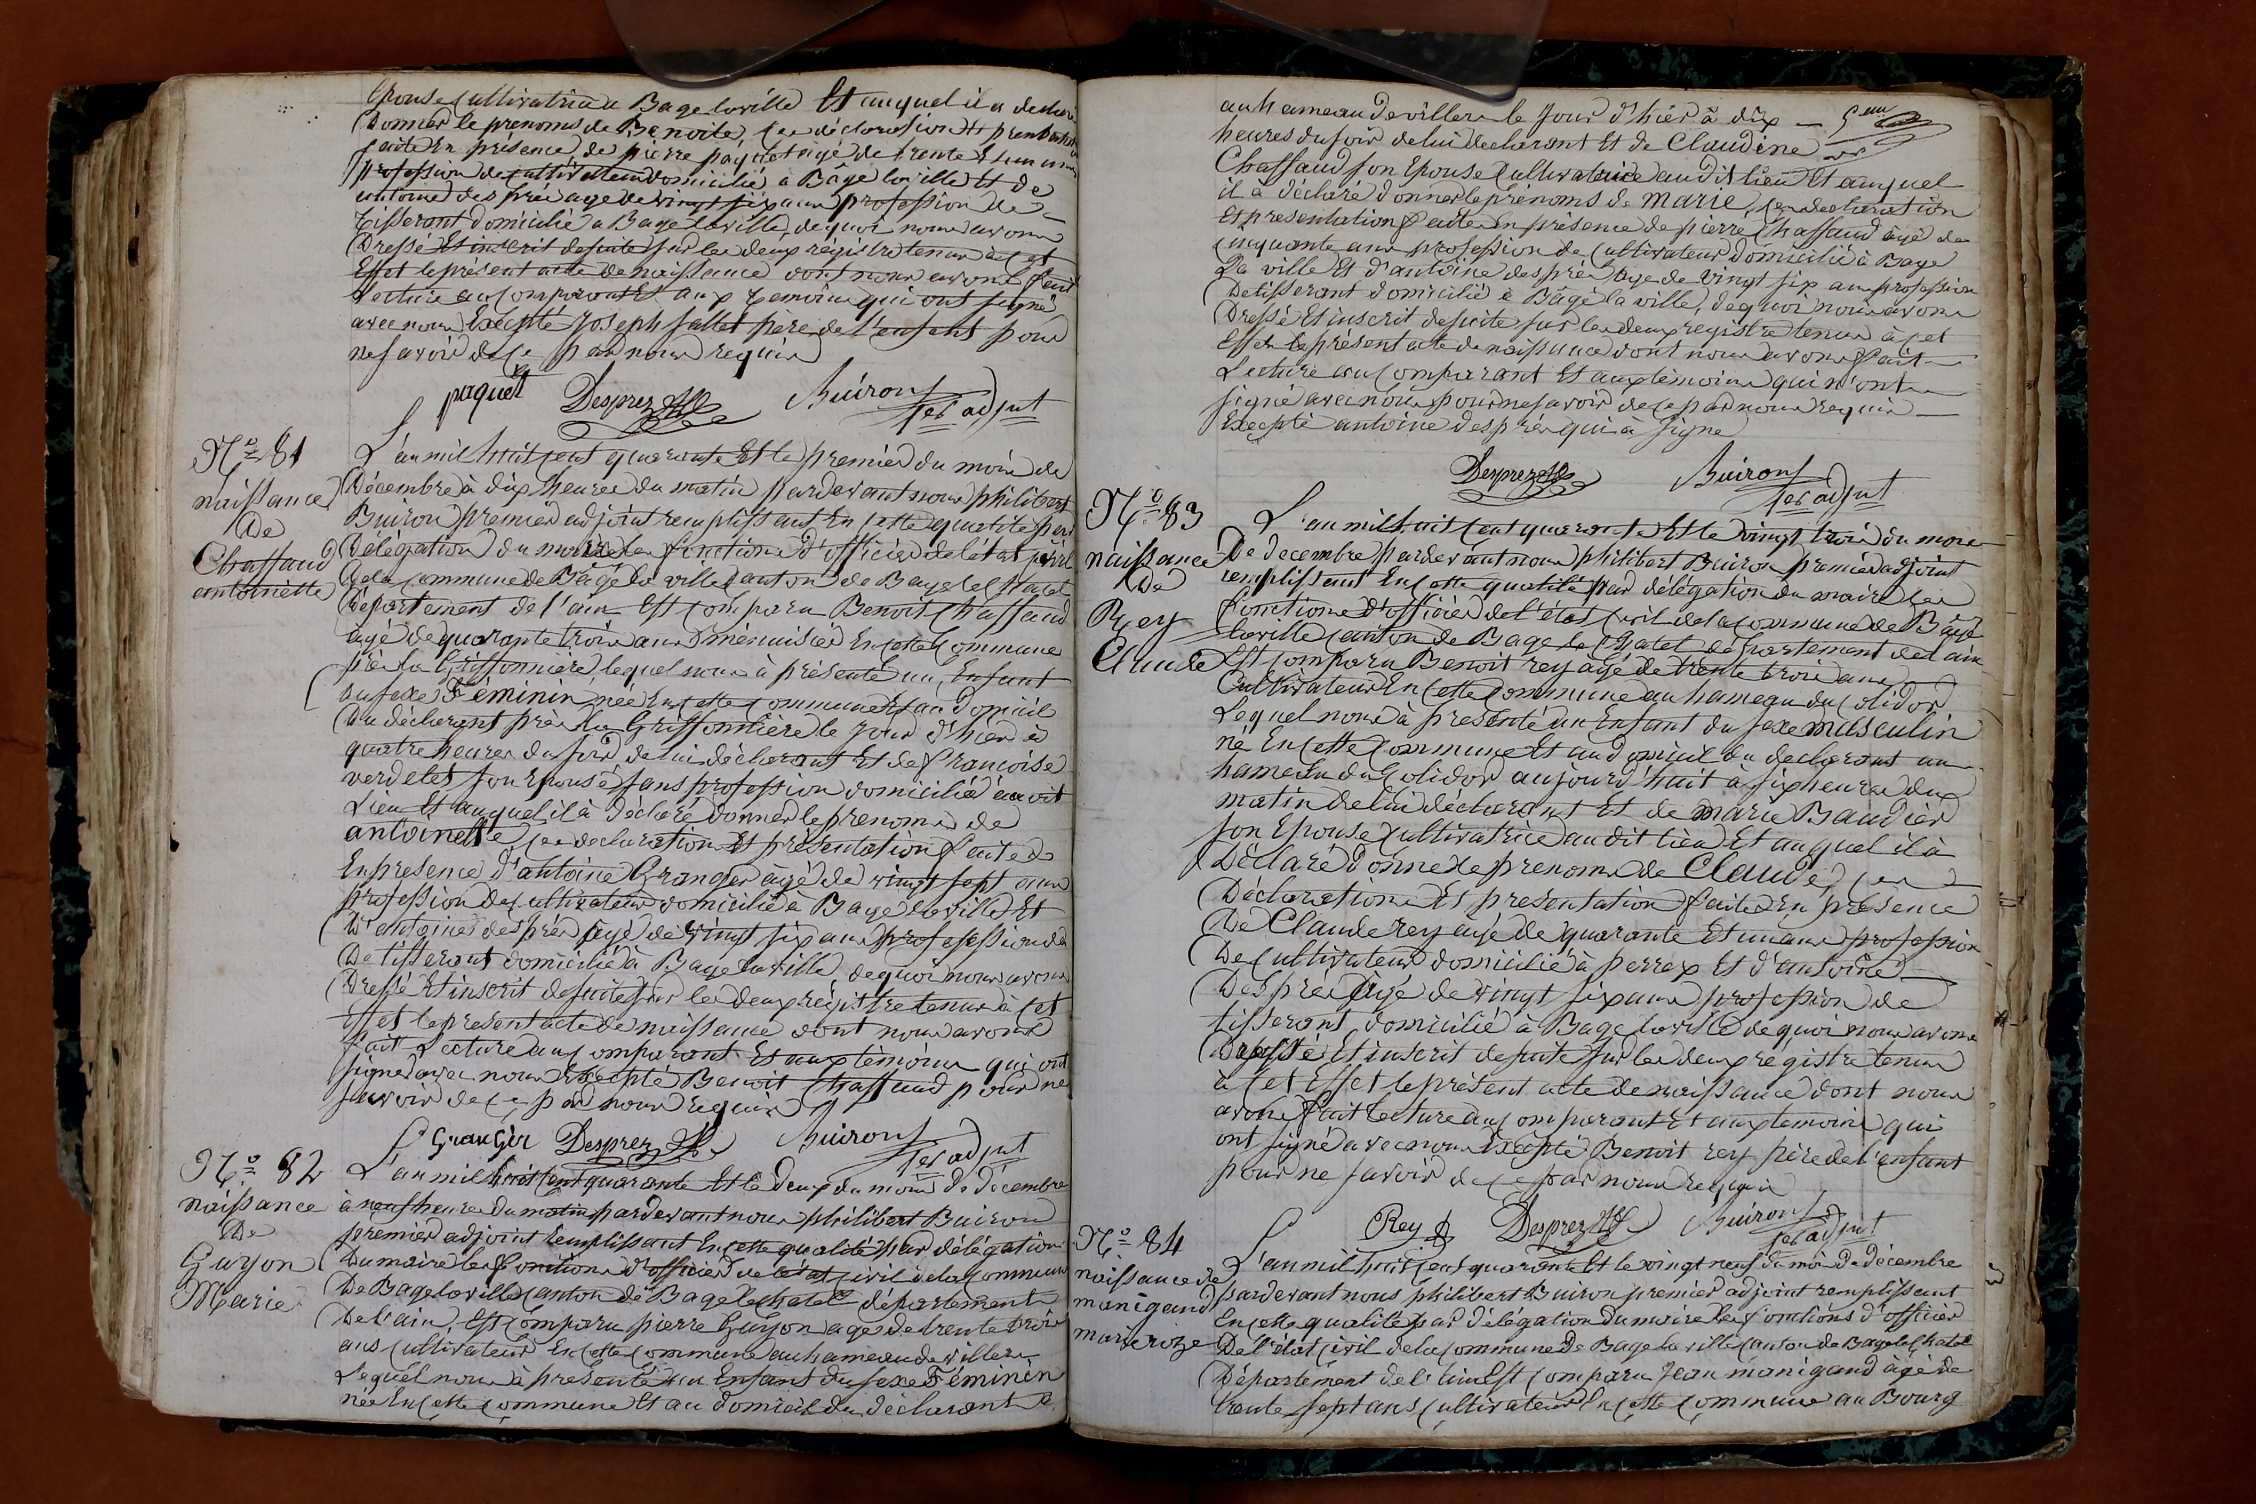 Epouse Cultivatrice a Bage laville Et auquel il a declaré
Donner le prenoms de Benoite, Ces déclarasion Et présentation
faite En présence de pierre paquet agé de trente Et un ans
profession de cultivateur domicilié à Bage laville Et de
antoine des prés age de vingt six ans profession de
Tisserant domicilié a Bage laville, de quoi nous avons
Dressé Et inscrit desuite sur les deux régistre tenus à cet
Effet le présent acte de naissance dont nous avons fait
Lecture au Comparant Et aux temoins qui ont signé
avec nous Excepté Joseph fallet père de l'enfant pour
ne savoir de ce par nous requis
paquet Desprez Buiron
1er adjut
N.o 81
naissance
De
Chaffaud
antoinette
L'an mil huit cent quarante Et le premier du mois de
Décembre à dix heures du matin pardevant nous philibert
Buiron premier adjoint remplissant En cette qualité par
Délégation du maire les fonctions d'officier de l'état civil
de la commune de Bâgé la ville canton de Bage le Chatel
Département de l'ain Est Comparu Benoit Chaffaud
agé de quarante trois ans menuisier En cette Commune
près la Griffonnière, lequel nous à présenté un Enfant
du sexe Féminin née En cette commune Et au domicil
Du déclarant près la Griffonnière le jour d'hier à
quatre heures du soir de lui déclarant Et de françoise
verdelet son Epouse sans profession domicilié au dit
Lieu Et auquel il à déclaré donner le prenoms de
antoinette, ces declaration Et présentation faite
En presence d'antoine Granger agé de vingt sept ans
profession de cultivateur domicilié à Bagé la ville Et
D'antoine des prés agé de vingt six ans profesession de
De tisserant domicilié à Bage la ville, de quoi nous avons
Dressé Et inscrit desuite sur les deux régistre tenus à cet
Effet le present acte de naissance dont nous avons
fait Lecture au Comparant Et aux témoins qui ont
signé avec nous Excepté Benoit Chaffaud pour ne
savoir de ce par nous requis
Granger Desprez Buiron
1er adjut
N.o 82
naissance
De
Guyon
Marie
L'an mil huit cent quarante Et le deux du mois De décembre
à neuf heures du matin pardevant nous philibert Buiron
premier adjoint remplissant En cette qualité par délégation
Du maire les fonctions d'officier de l'état civil de la commune
De Bage la ville canton de Bage le chatel département
De l'ain, Est Comparu pierre Guyon agé de trente trois
ans Cultivateur En cette commune au hameau de villers
Lequel nous à presenté un Enfant du sexe Féminin
née En cette commune Et au domicil du déclarant
au hameau de villers le jour d'hier à dix
heures du soir de lui declarant Et de Claudine
Chaffaud son Epouse Cultivatrice au dit lieu Et auquel
il à déclaré donner le prénoms de Marie, Ces declaration
Et presentation faite En présence de pierre Chaffaud agé de
Cinquante ans profession de Cultivateur domicilié à Bage
La ville Et d'antoine des prés age de vingt six ans profession
De tisserant domicilié à Bâgé la ville, de quoi nous avons
Dressé Et inscrit desuite sur les deux registre tenus à cet
Effet le présent acte de naissance dont nous avons fait
Lecture au Comparant Et aux témoins qui n'ont
signé avec nous pour ne savoir de ce par nous requis
Excepté antoine des prés qui à signé
Desprez Buiron
1er adjut
N.o 83
naissance
De
Rey
Claude
L'an mil huit cent quarante Et le vingt trois du mois
De decembre pardevant nous philibert Buiron premier adjoint
remplissant En cette qualité par délégation du maire les
fonctions d'officier de l'état civil de la commune de Bâgé
la ville canton de Bage le Chatel département de l'ain
Est comparu Benoit rey agé de trente trois ans
Cultivateur En cette commune au hameau du Colidor
Lequel nous à presenté un Enfant du sexe masculin
né En cette commune Et au domicil du declarant au
hameau du Colidor aujourd'huit à six heures du
matin de lui declarant Et de marie Baudier
son Epouse Cultivatrice au dit lieu Et auquel il à
Déclaré donner le prenoms de Claude, Ces
Déclarations Et presentation faite En présence
De Claude rey agé de quarante Et un ans profession
De Cultivateur domicilié à perrex Et d'antoine
Des prés agé de vingt six ans profession de
tisserant domicilié à Bage la ville de quoi nous avons
Dressé Et inscrit desuite sur les deux registre tenus
à cet Effet le présent acte de naissance dont nous
avons fait Lecture au Comparant Et aux temoins qui
ont signé avec nous Excepté Benoit rey père de l'enfant
pour ne savoir de ce par nous requis
Rey Desprez Buiron
1er adjut
N.o 84
naissance de
manigand
marie roze
L'an mil huit cent quarante Et le vingt neuf du mois De décembre
pardevant nous philibert Buiron premier adjoint remplissant
En cette qualité par délégation du maire les fonctions d'officier
De l'état civil de la commune De Bage la ville canton de Bage le Chatel
Département de l'ain Est Comparu Jean manigand agé de
trente sept ans Cultivateur En cette commune au Bourg